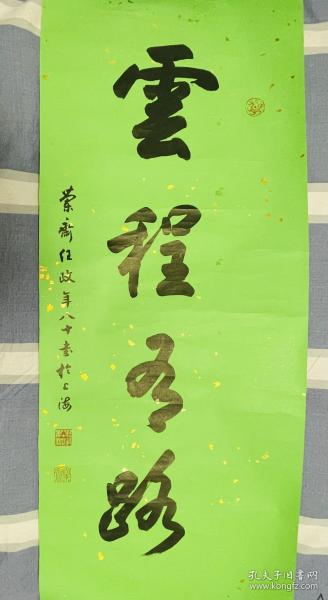 雲程有路
蘭齋任政年八十書於上海
孔夫子旧书网